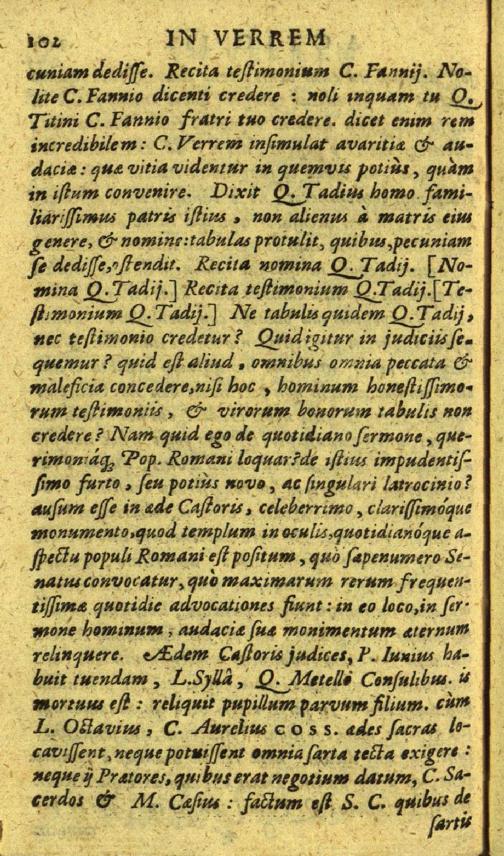 102 IN VERREM
cuniam dedisse. Recita testimonium C. Fannij. No-
lite C. Fannio dicenti credere : noli inquam tu Q.
Titini C. Fannio fratri tuo credere. dicet enim rem
incredibilem : C. Verrem insimulat avaritiæ & au-
daciæ : quæ vitia videntur in quemvis potiùs, quàm
in istum convenire. Dixit Q. Tadius homo fami-
liarissimus patris istius, non alienus à matris eius
genere, & nomine: tabulas protulit, quibus, pecuniam
se dedisse, ostendit. Recita nomina Q. Tadij. [No-
mina Q. Tadij.] Recita testimonium Q. Tadij. [Te-
stimonium Q. Tadij.] Ne tabulis quidem Q. Tadij,
nec testimonio credetur? Quid igitur in judiciis se-
quemur? quid est aliud, omnibus omnia peccata &
maleficia concedere, nisi hoc, hominum honestissimo-
rum testimoniis, & virorum bonorum tabulis non
credere? Nam quid ego de quotidiano sermone, que-
rimoniáq; Pop. Romani loquar? de istius impudentis-
simo furto, seu potiùs novo, ac singulari latrocinio?
ausum esse in æde Castoris, celeberrimo, clarissimóque
monumento, quod templum in oculis, quotidianóque a-
spectu populi Romani est positum, quò sæpenumero Se-
natus convocatur, quò maximarum rerum frequen-
tissimæ quotidie advocationes fiunt : in eo loco, in ser-
mone hominum, audaciæ suæ monimentum æternum
relinquere. Ædem Castoris judices, P. Iunius ha-
buit tuendam, L. Syllâ, Q. Metello Consulibus. is
mortuus est : reliquit pupillum parvum filium. cùm
L. Octavius, C. Aurelius COSS. ædes sacras lo-
cavissent, neque potuissent omnia sarta tecta exigere :
neque ij Prætores, quibus erat negotium datum, C. Sa-
cerdos & M. Cæsius : factum est S. C. quibus de
sartis